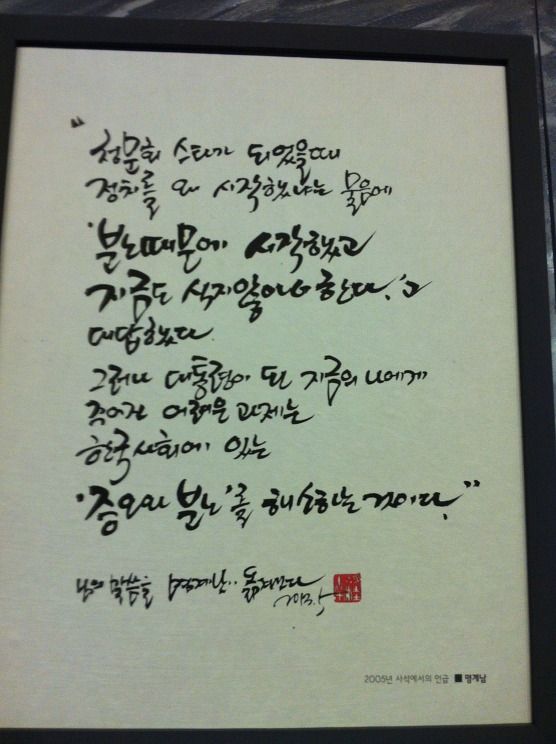 "청문회 스타가 되었을때
정치를 왜 시작했냐는 물음에
'분노때문에 시작했고
지금도 식지않아야 한다.'고
대답했다.
그러나 대통령이 된 지금의 나에게
주어진 어려운 과제는
한국사회에 있는
'증오와 분노'를 해소하는 것이다."
님의 말씀을 명계남.. 옮기다
2013.5
2005년 사석에서의 언급 ■ 명계남